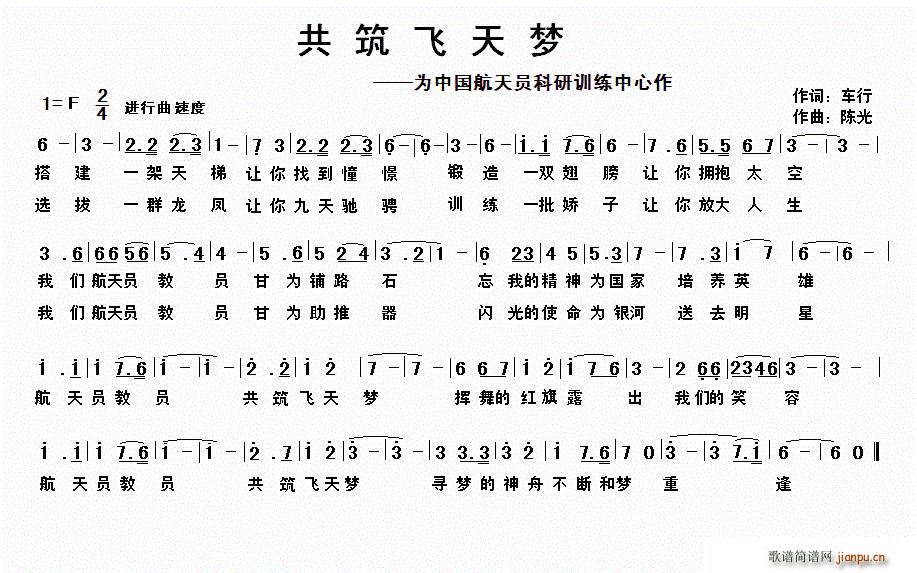 共筑飞天梦
——为中国航天员科研训练中心作
1=F 2/4 进行曲速度
作词：车行
作曲：陈光
6 - | 3 - | 2. 2 2. 3 | 1 - | 7 3 | 2. 2 2. 3 | 6 - | 6 - | 3 - | 6 - | i. i i. i | 7. 6 | 6 - | 7 . 6 | 5. 5 6 7 | 3 - | 3 - |
搭 建 一架天 梯 让你找到憧 憬 锻 造 一双翅 膀 让 你 拥抱 太 空
选 拔 一群龙 凤 让你九天驰 骋 训 练 一批娇 子 让 你 放大 人 生
3 . 6 | 6 6 5 6 | 5 . 4 | 4 - | 5 . 5 | 5 2 4 | 3 - | 3 . 2 | 1 - | 6 2 3 | 4 5 | 5. 3 | 7 - | 7 . 3 | i 7 | 6 - | 6 - |
我 们 航天员 教 员 甘 为 铺 路 石 忘 我的 精 神 为 国 家 培 养 英 雄
我 们 航天员 教 员 甘 为 助 推 器 闪 光的 使 命 为 银 河 送 去 明 星
i . i | i 7. 6 | i - | i - | 2 . 2 | i 2 | 7 - | 7 - | 6 6 7 | 6 2 | i 7 6 | 3 - | 2 6 6 | 2 3 4 6 | 3 - | 3 - |
航 天 员 教 员 共 筑 飞 天 梦 挥 舞的 红 旗 露 出 我 们的 笑 容
i . i | i 7. 6 | i - | i - | 2 . 7 | i 2 | 3 - | 3 - | 3 3. 3 | 3 2 | i 7. 6 | 7 0 | 3 - | 3 7. i | 6 - | 6 0 ‖
航 天 员 教 员 共 筑 飞天 梦 寻 梦 的 神 舟 不 断 和 梦 重 逢
歌谱简谱网 jianpu.cn